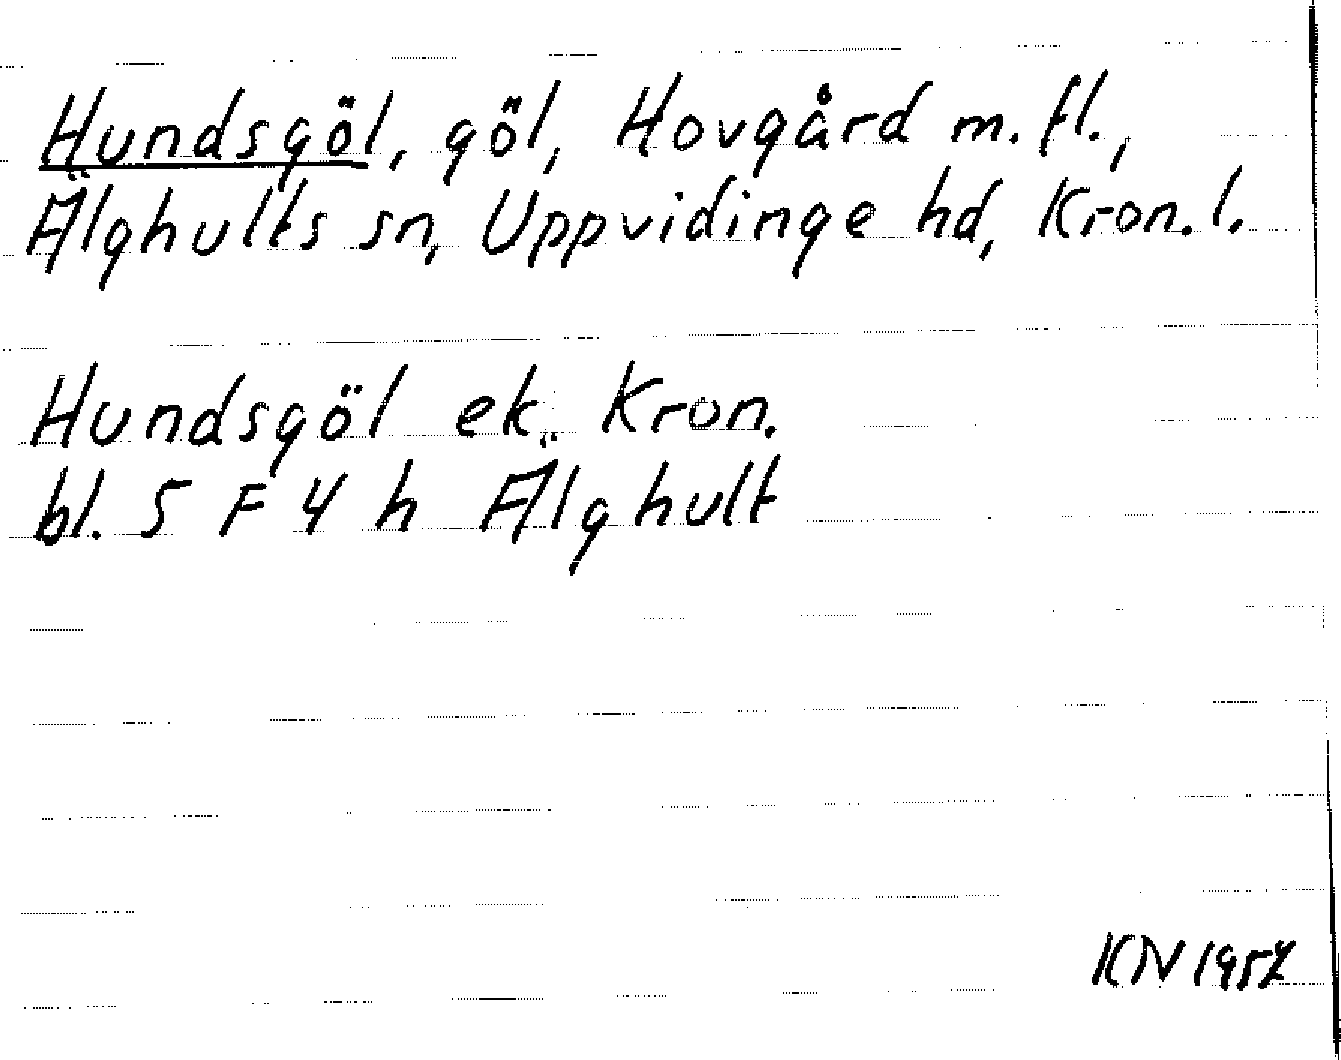 Hundsgöl, göl, Hovgård m.fl.,
Älghults sn, Uppvidinge hd, Kron.l.
Hundsgöl ek. Kron.
bl. 5 F 4 h Älghult
KN 1957